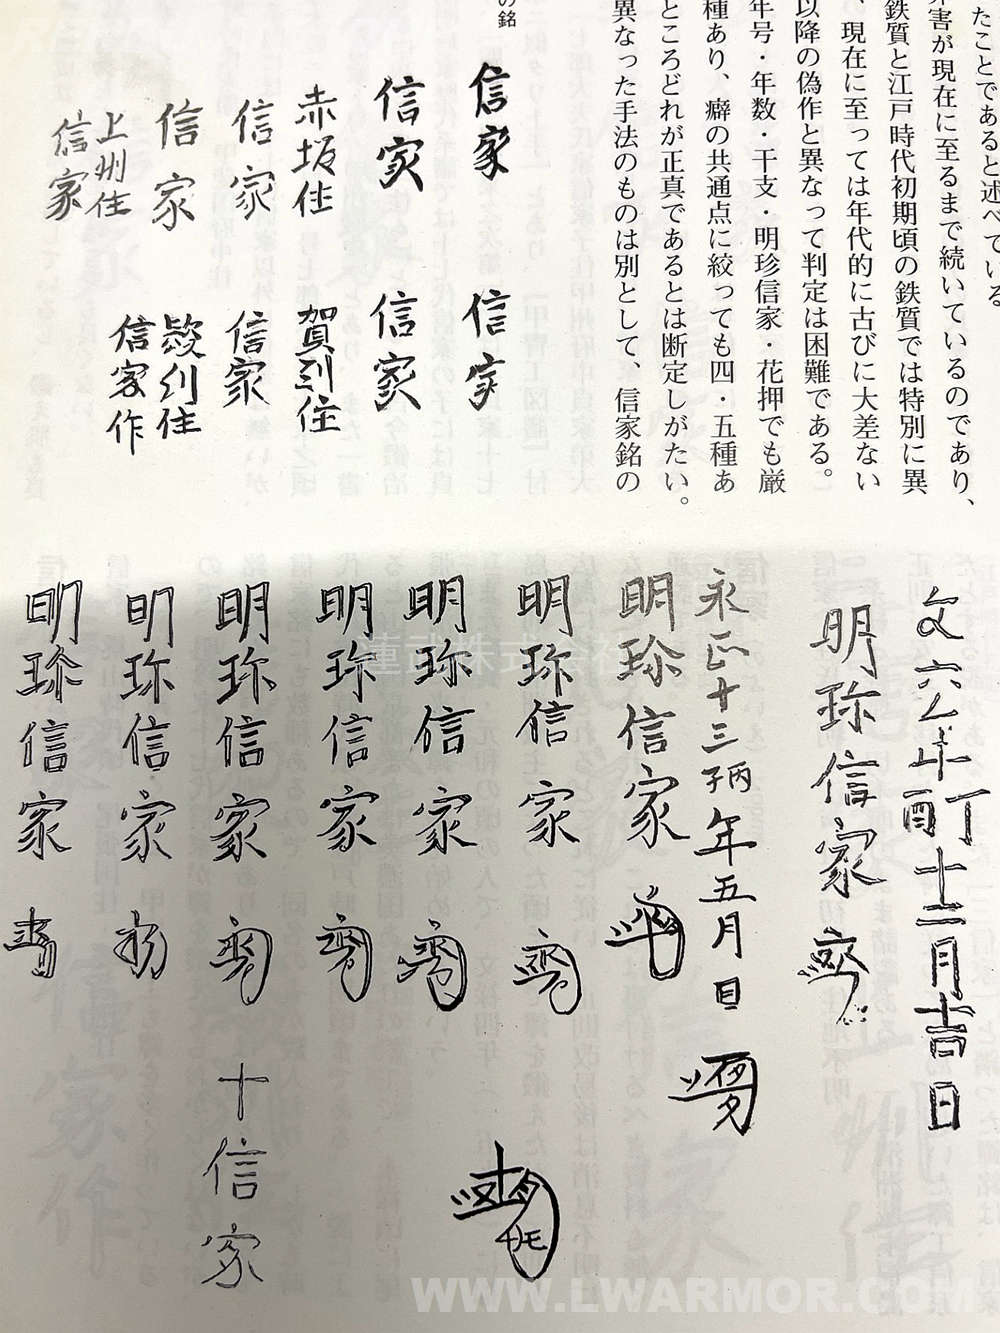 たことであると述べている
弊害が現在に至るまで続いているのであり、
鉄質と江戸時代初期頃の鉄質では特別に異
、現在に至っては年代的に古びに大差ない
以降の偽作と異なって判定は困難である。
年号・年数・干支・明珍信家・花押でも厳
種あり、癖の共通点に絞っても四・五種あ
ところどれが正真であるとは断定しがたい。
異なった手法のものは別として、信家銘の
の銘
信家
信家
信家
信家
赤坂住
賀刕住
信家
信家
信家
上州住
信家
刕住
信家作
文六年丁酉十二月吉日
明珎信家
永正十三丙子年五月日
明珎信家
明珎信家
明珎信家
明珎信家
明珎信家
十信家
明珎信家
明珎信家
蓮武株式会社
WWW.LWARMOR.COM